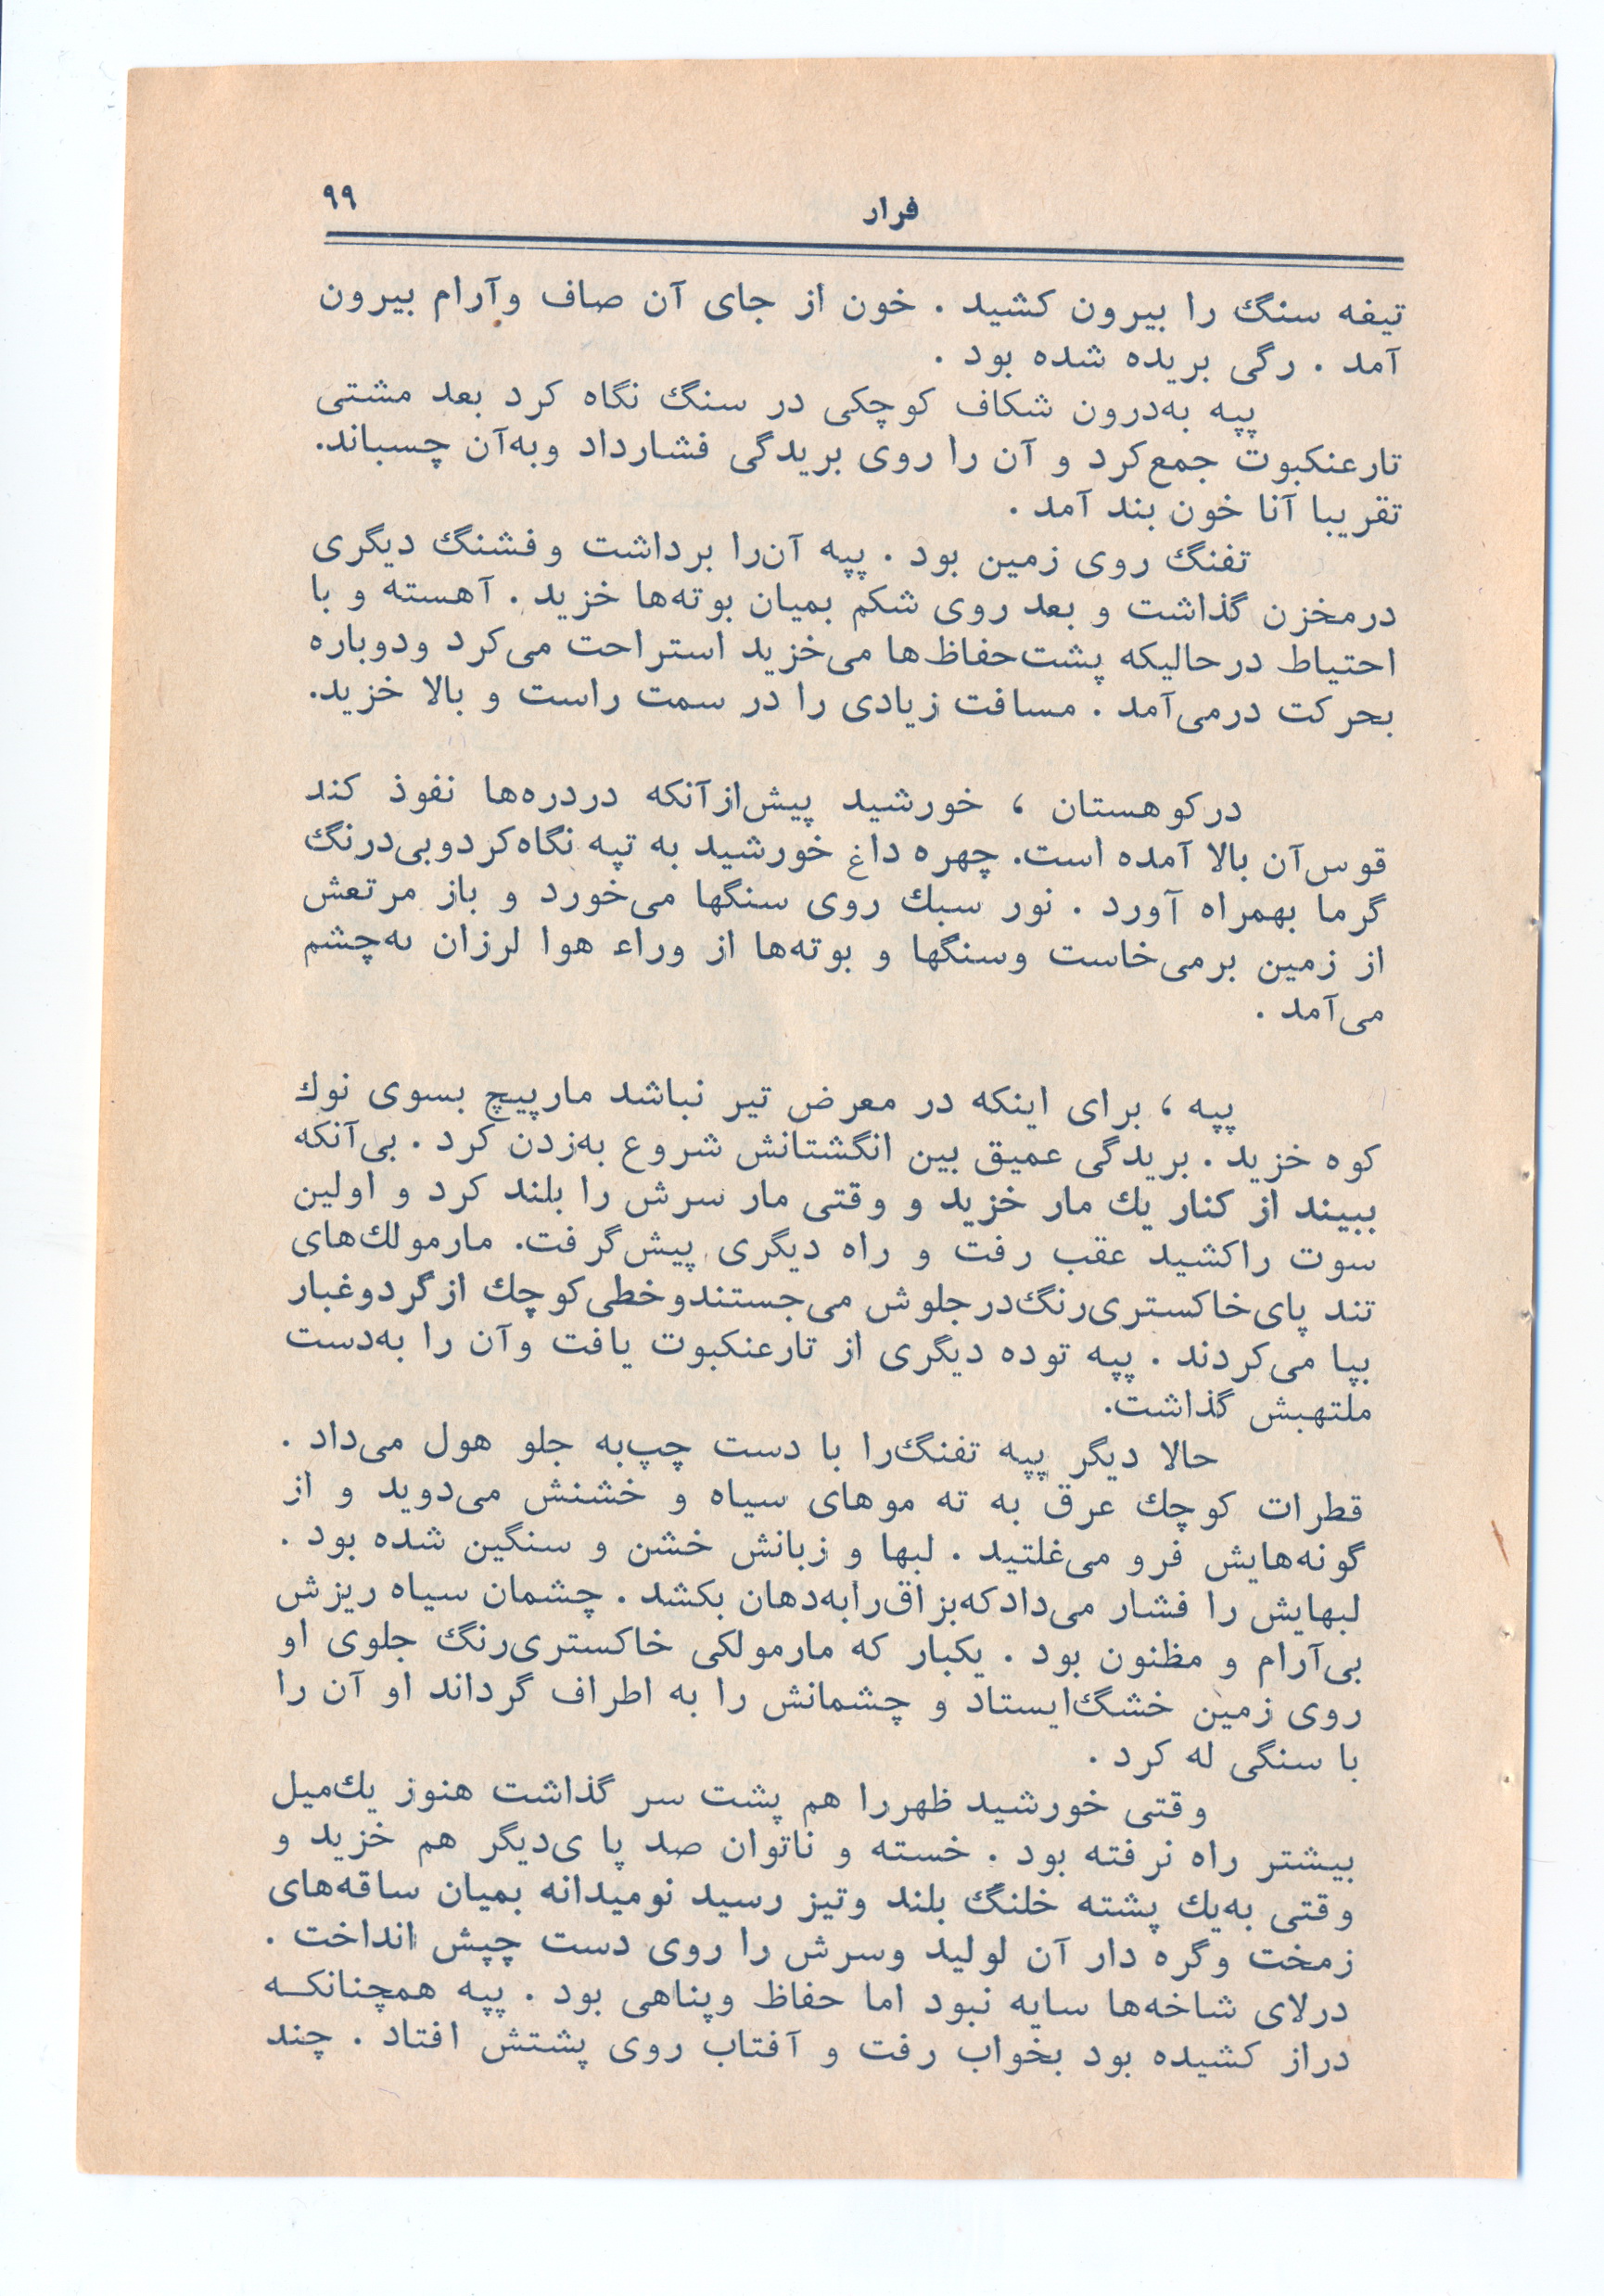 فرار
۹۹
تیغه سنگ را بیرون کشید . خون از جای آن صاف وآرام بیرون
آمد . رگی بریده شده بود .
پپه به‌درون شکاف کوچکی در سنگ نگاه کرد بعد مشتی
تارعنکبوت جمع‌کرد و آن را روی بریدگی فشارداد وبه‌آن چسباند.
تقریبا آنا خون بند آمد .
تفنگ روی زمین بود . پپه آن‌را برداشت وفشنگ دیگری
درمخزن گذاشت و بعد روی شکم بمیان بوته‌ها خزید . آهسته و با
احتیاط درحالیکه پشت‌حفاظ‌ها می‌خزید استراحت می‌کرد ودوباره
بحرکت درمی‌آمد . مسافت زیادی را در سمت راست و بالا خزید.
درکوهستان ، خورشید پیش‌ازآنکه دردره‌ها نفوذ کند
قوس‌آن بالا آمده است. چهره داغ خورشید به تپه نگاه‌کردوبی‌درنگ
گرما بهمراه آورد . نور سبك روی سنگها می‌خورد و باز مرتعش
از زمین برمی‌خاست وسنگها و بوته‌ها از وراء هوا لرزان به‌چشم
می‌آمد .
پپه ، برای اینکه در معرض تیر نباشد مارپیچ بسوی نوك
کوه خزید . بریدگی عمیق بین انگشتانش شروع به‌زدن کرد . بی‌آنکه
ببیند از کنار یك مار خزید و وقتی مار سرش را بلند کرد و اولین
سوت راکشید عقب رفت و راه دیگری پیش‌گرفت. مارمولك‌های
تند پای‌خاکستری‌رنگ‌درجلوش می‌جستندوخطی‌کوچك ازگردوغبار
بپا می‌کردند . پپه توده دیگری از تارعنکبوت یافت وآن را به‌دست
ملتهبش گذاشت.
حالا دیگر پپه تفنگ‌را با دست چپ‌به جلو هول می‌داد .
قطرات کوچك عرق به ته موهای سیاه و خشنش می‌دوید و از
گونه‌هایش فرو می‌غلتید . لبها و زبانش خشن و سنگین شده بود .
لبهایش را فشار می‌دادکه‌بزاق‌رابه‌دهان بکشد . چشمان سیاه ریزش
بی‌آرام و مظنون بود . یکبار که مارمولکی خاکستری‌رنگ جلوی او
روی زمین خشگ‌ایستاد و چشمانش را به اطراف گرداند او آن را
با سنگی له کرد .
وقتی خورشید ظهررا هم پشت سر گذاشت هنوز یك‌میل
بیشتر راه نرفته بود . خسته و ناتوان صد پا ی‌دیگر هم خزید و
وقتی به‌یك پشته خلنگ بلند وتیز رسید نومیدانه بمیان ساقه‌های
زمخت وگره دار آن لولید وسرش را روی دست چپش انداخت .
درلای شاخه‌ها سایه نبود اما حفاظ وپناهی بود . پپه همچنانکـه
دراز کشیده بود بخواب رفت و آفتاب روی پشتش افتاد . چند